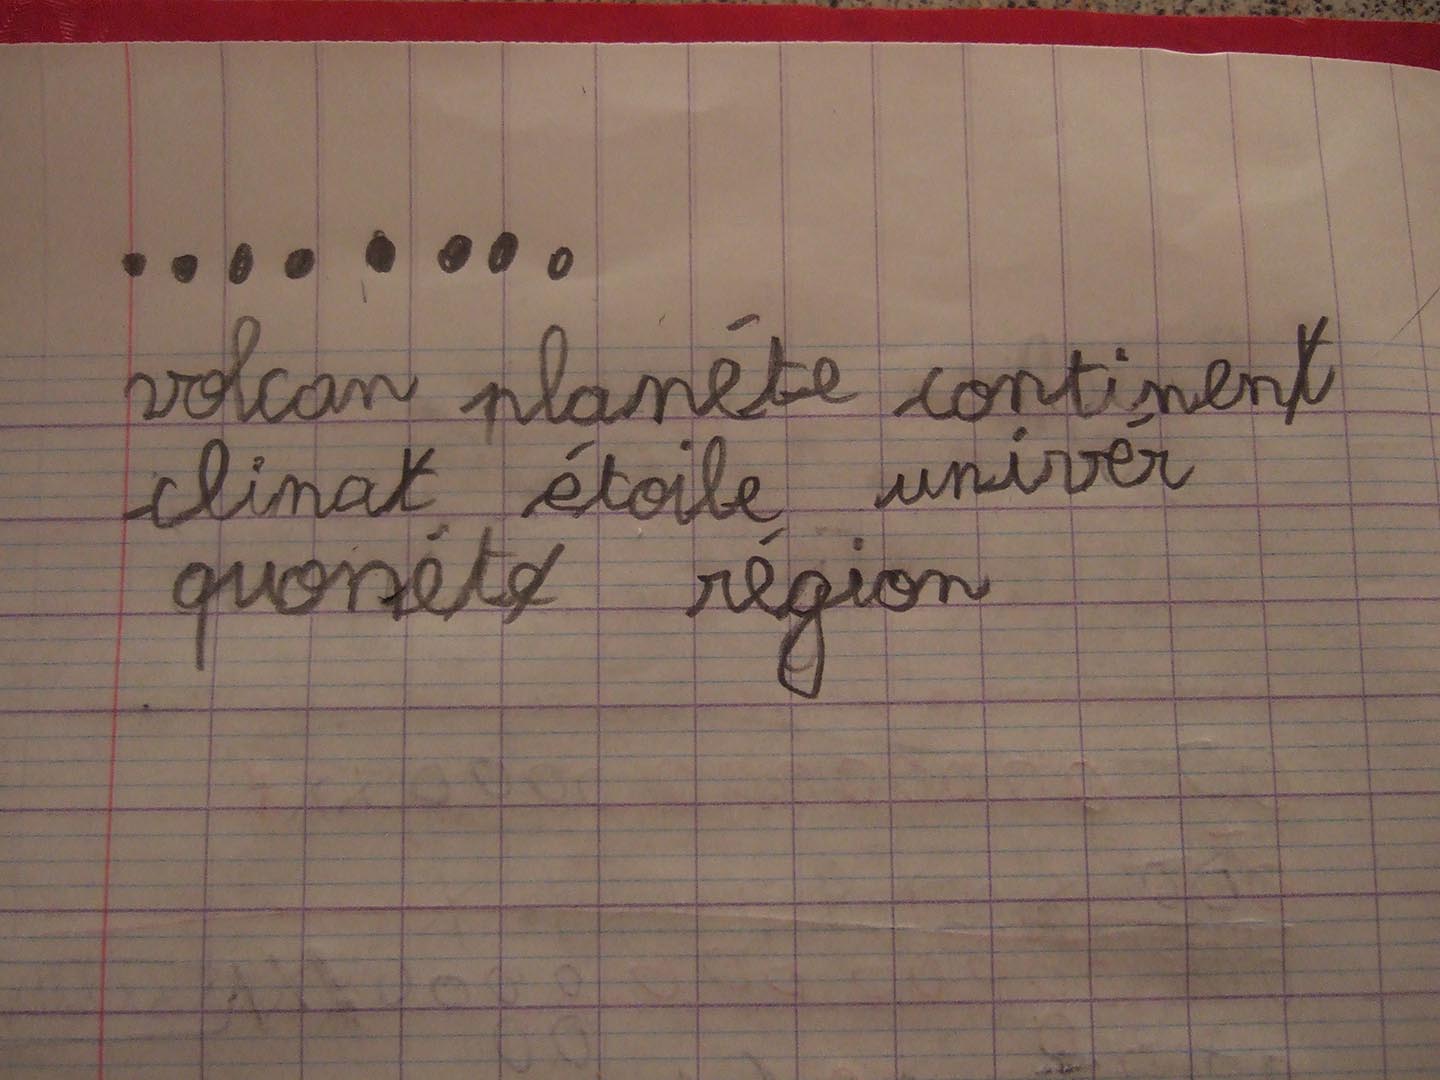 volcan planéte continent
clinat étoile univér
quonéte région